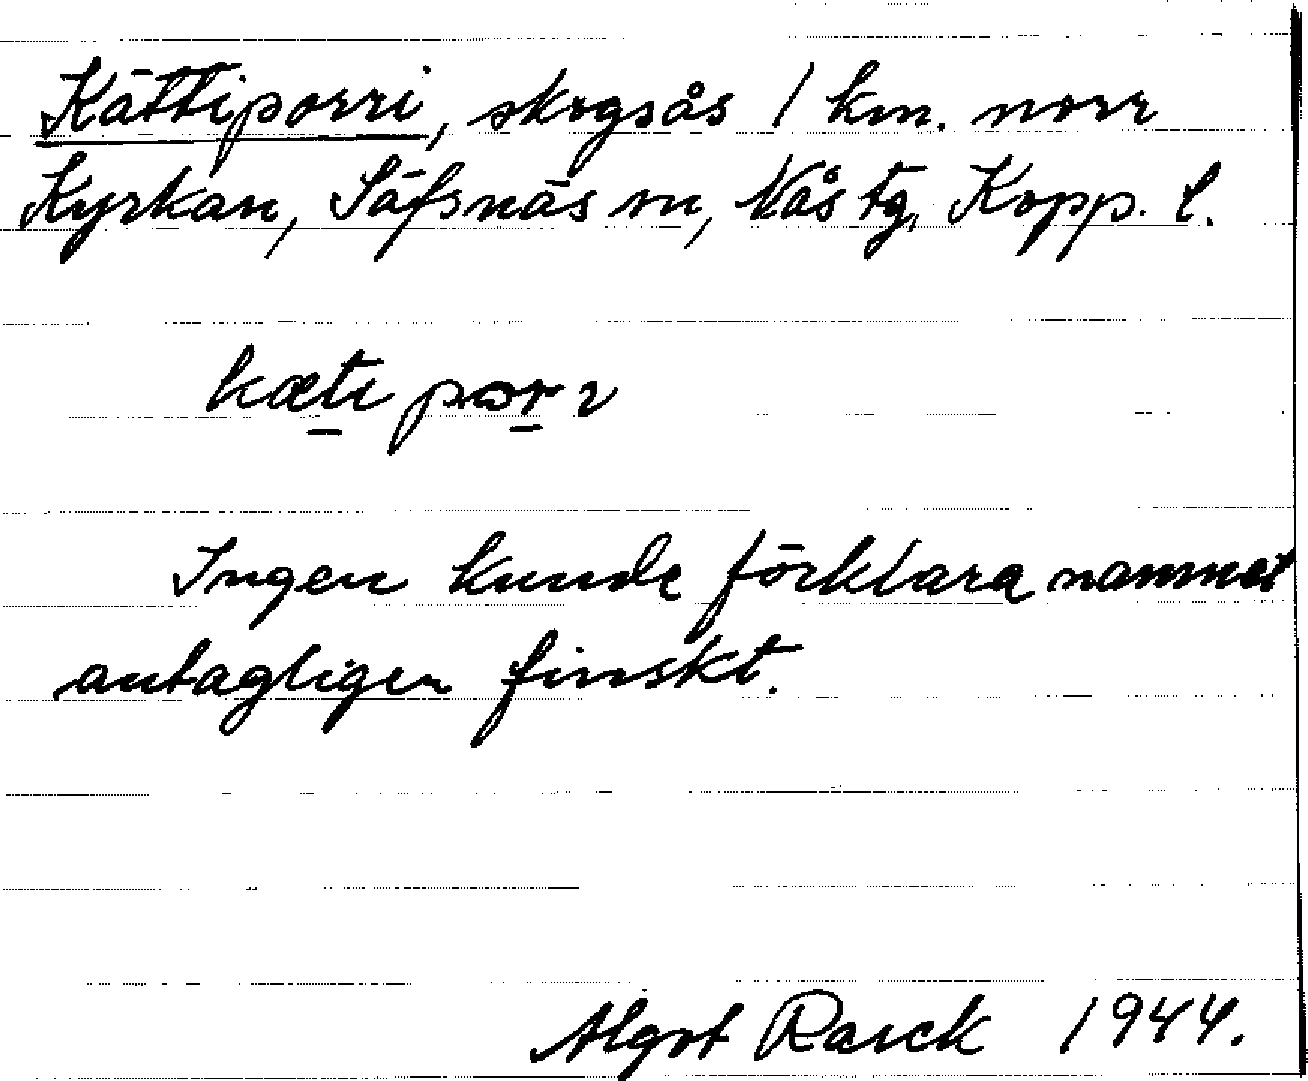 Kättiporri, skogsås 1 km. norr
Kyrkan, Säfsnäs sn, Nås tg, Kopp. l.
kæti pɔrɩ
Ingen kunde förklara namnet
antagligen finskt.
Algot Rarck 1944.